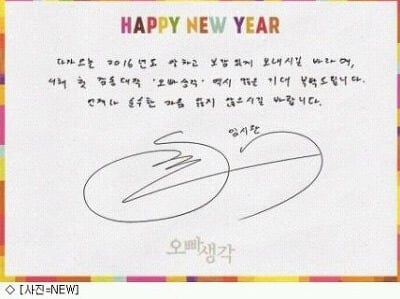 HAPPY NEW YEAR
다가오는 2016년도 알차고 보람되게 보내시길 바라며,
새해 첫 감동대작 '오빠생각' 역시 많은 기대 부탁드립니다.
언제나 순수한 마음 잃지 않으시길 바랍니다.
임시완
오빠생각
◇ [사진=NEW]